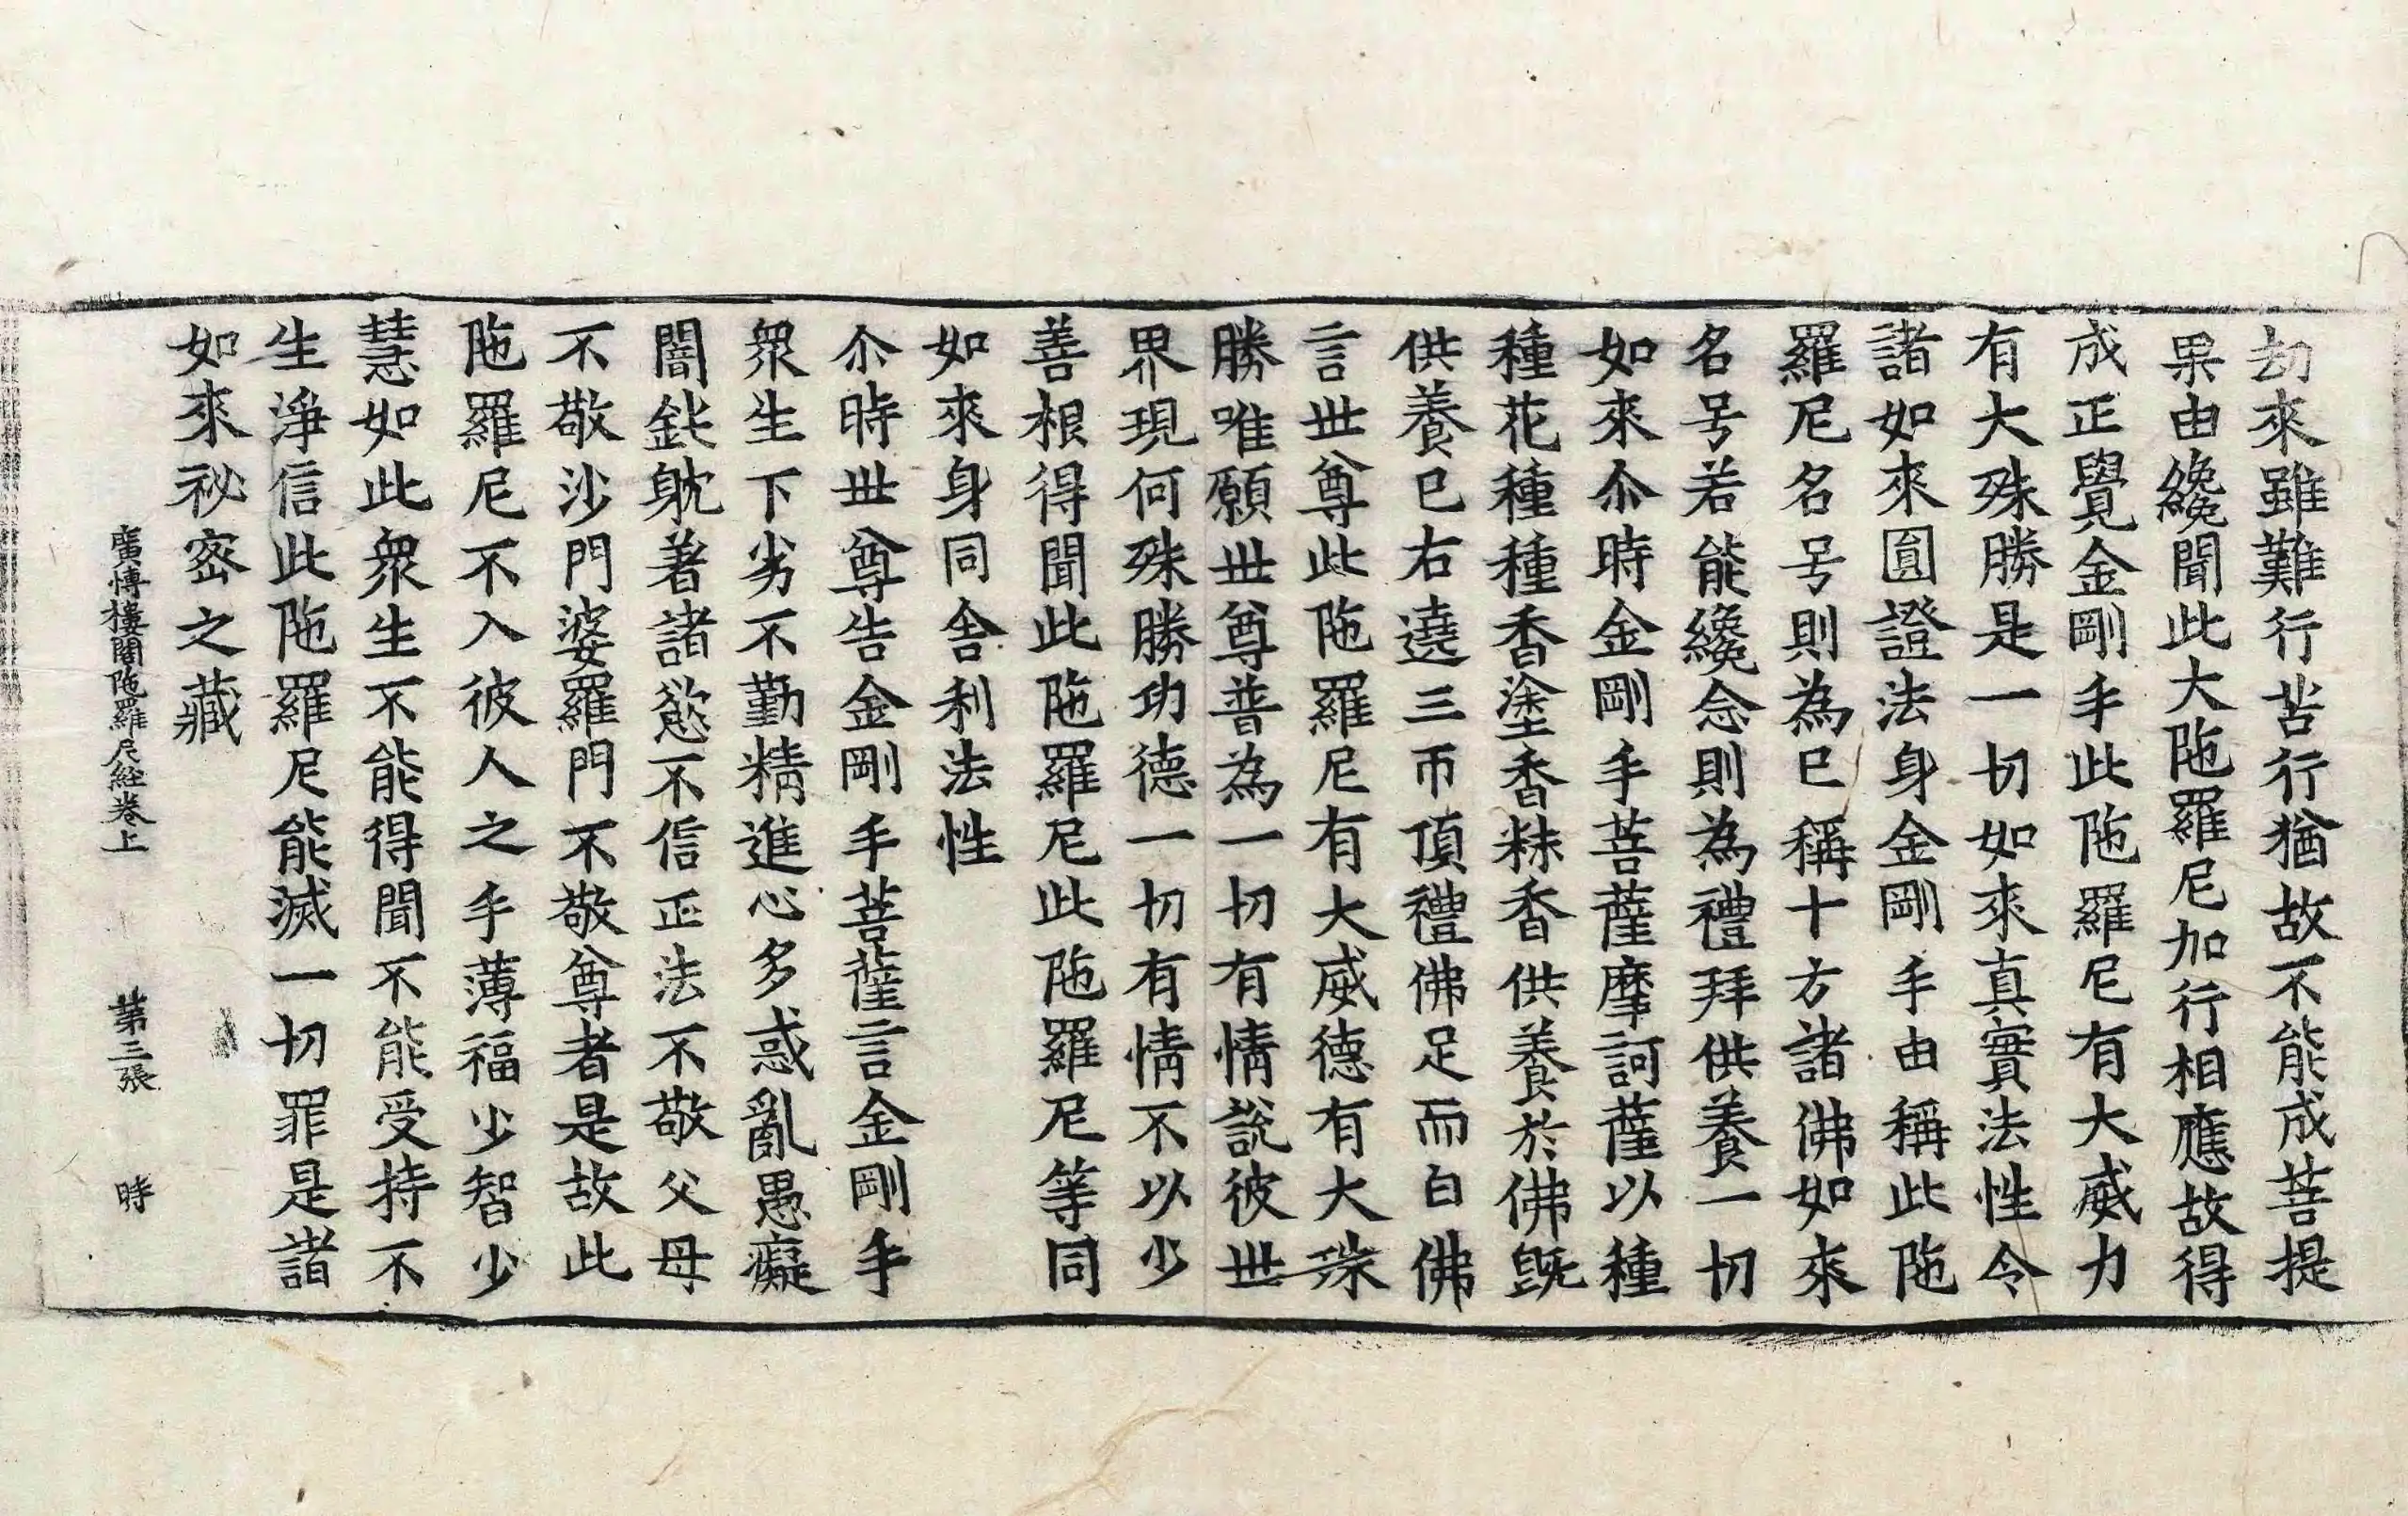 劫來雖難行苦行猶故不能成菩提
果由纔聞此大陁羅尼加行相應故得
成正覺金剛手此陁羅尼有大威力
有大殊勝是一切如來真實法性令
諸如來圓證法身金剛手由稱此陁
羅尼名号則為已稱十方諸佛如來
名号若能纔念則為禮拜供養一切
如來尒時金剛手菩薩摩訶薩以種
種花種種香塗香粖香供養於佛既
供養已右遶三帀頂禮佛足而白佛
言世尊此陁羅尼有大威德有大殊
勝唯願世尊普為一切有情說彼世
界現何殊勝功德一切有情不以少
善根得聞此陁羅尼此陁羅尼等同
如來身同舍利法性
尒時世尊告金剛手菩薩言金剛手
眾生下劣不勤精進心多惑亂愚癡
闇鈍躭著諸慾不信正法不敬父母
不敬沙門婆羅門不敬尊者是故此
陁羅尼不入彼人之手薄福少智少
慧如此眾生不能得聞不能受持不
生淨信此陁羅尼能滅一切罪是諸
如來祕密之藏
廣博樓閣陁羅尼經卷上 第三張 時